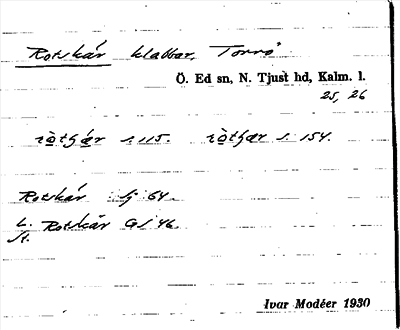 Rotskär kladdar, Torrö
Ö. Ed sn, N. Tjust hd, Kalm. l.
25, 26
s. 115. s. 154.
Rotskär sj 64.
L.
St. Rotskär GS 46.
Ivar Modéer 1930